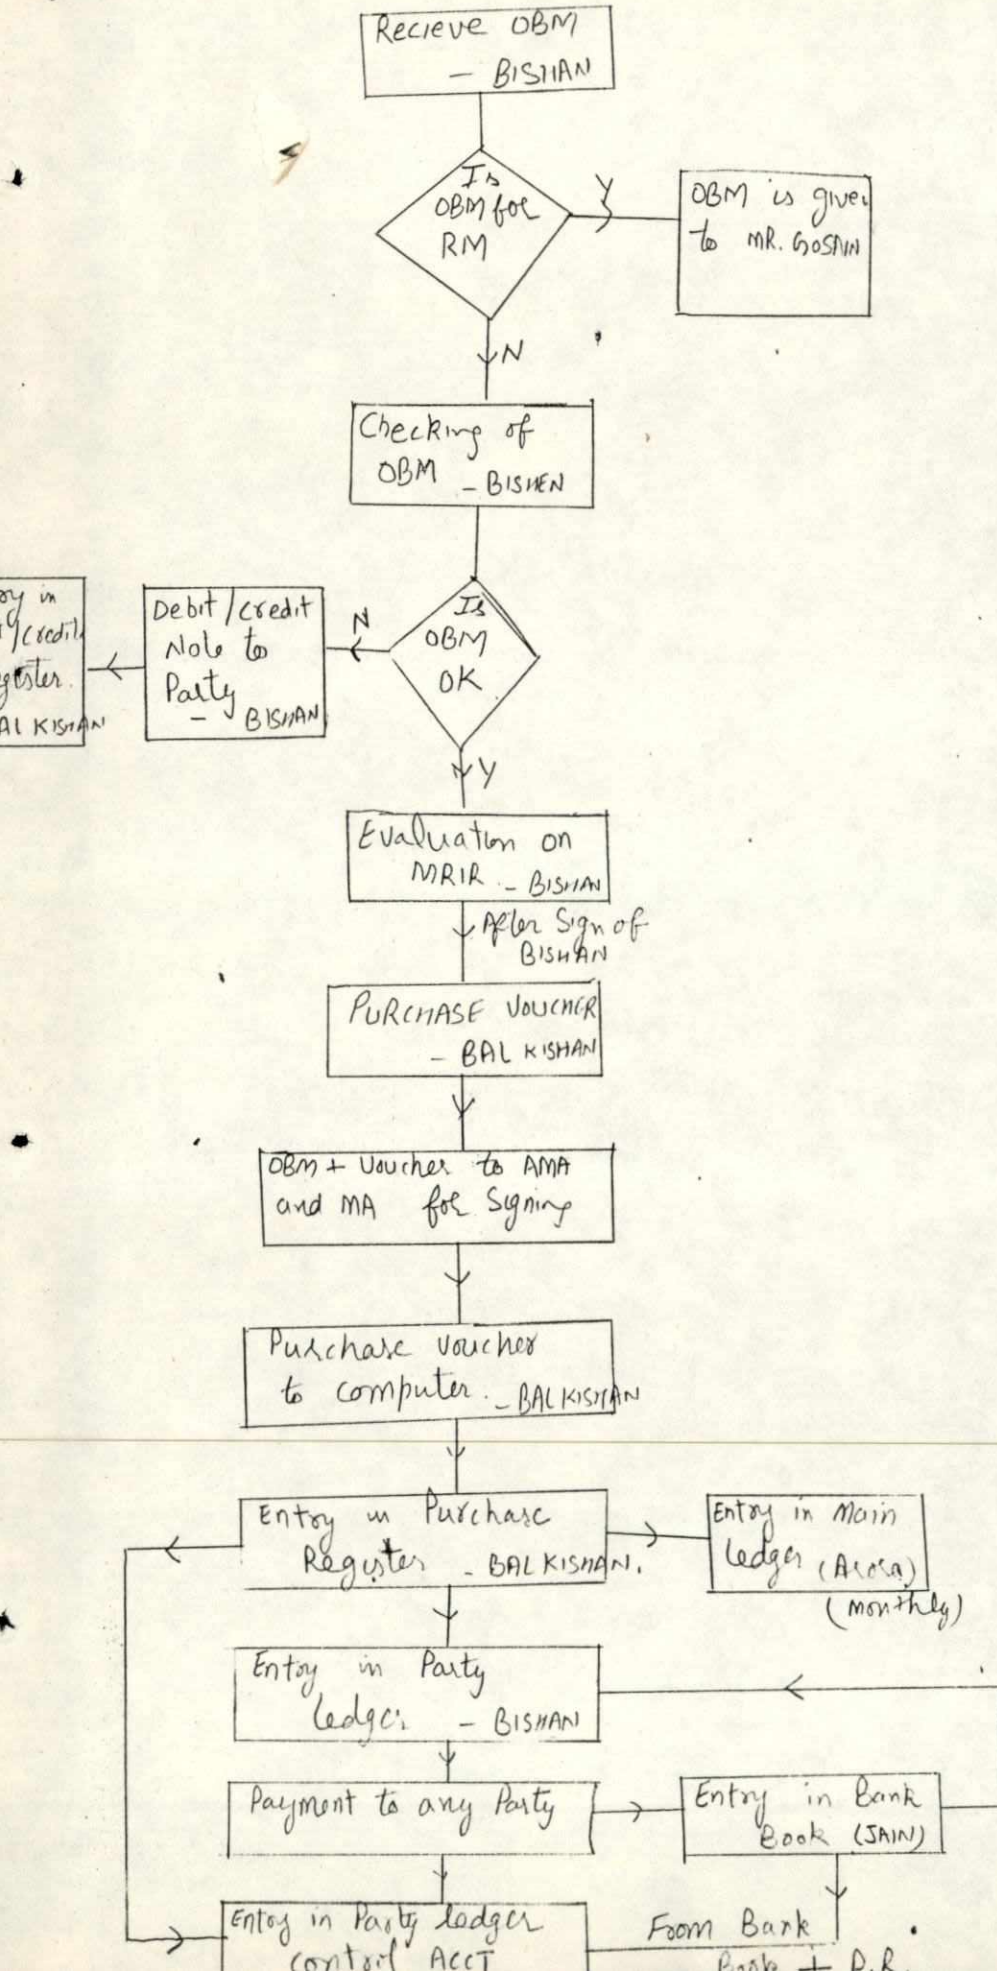 Recieve OBM
- BISHAN
Is
OBM for
RM
Y
OBM is given
to MR. GOSAIN
N
Checking of
OBM - BISHEN
Is
OBM
OK
N
Debit/credit
Note to
Party
- BISHAN
in
/credit
AL KISHAN
Y
Evaluation on
MRIR - BISHAN
After Sign of
BISHAN
PURCHASE VOUCHER
- BAL KISHAN
OBM + Voucher to AMA
and MA for Signing
Purchase voucher
to computer. - BAL KISHAN
Entry in Purchase
Register - BAL KISHAN.
Entry in Main
ledger (Arora)
(monthly)
Entry in Party
ledger - BISHAN
Payment to any Party
Entry in Bank
Book (JAIN)
Entry in Party ledger
control ACCT
From Bank
Book + P.R.